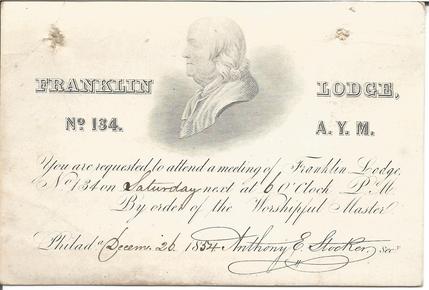 FRANKLIN LODGE,
No 134. A. Y. M.
You are requested to attend a meeting of Franklin Lodge,
No 134 on Saturday next at 6 O'Clock P.M.
By order of the Worshipful Master.
Philada Decem. 26 1854 Anthony E. Stocker, Secy